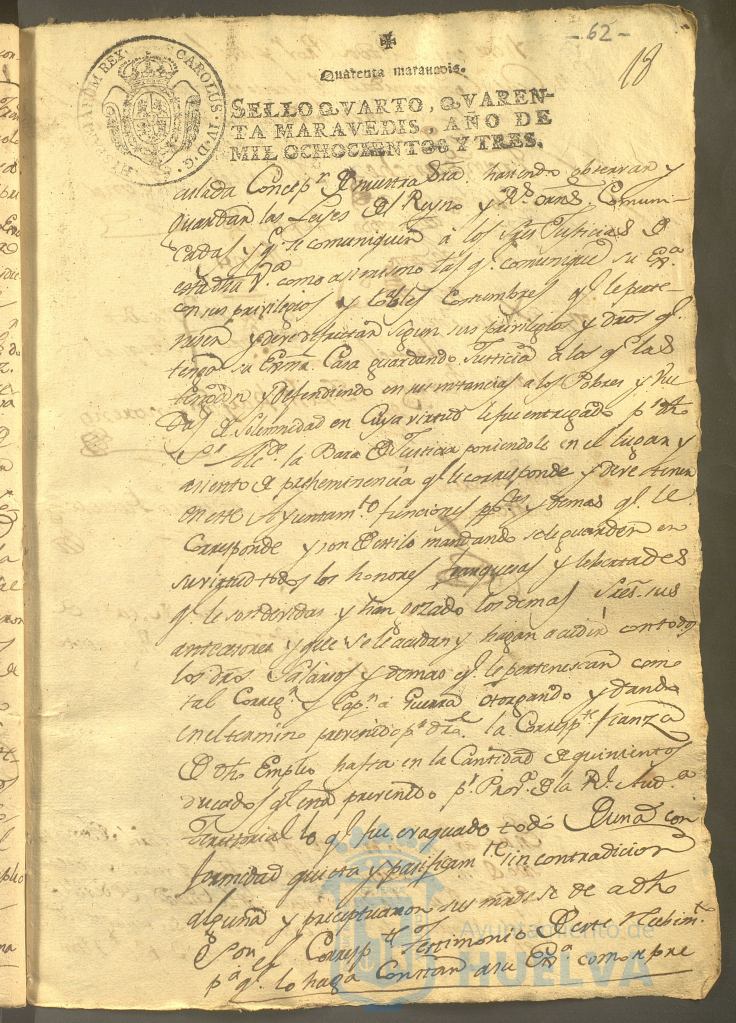 - 62 -
18
CAROLUS IV D. G. HISPANIARUM REX
Quarenta maravedis.
SELLO QVARTO, QVAREN-
TA MARAVEDIS, AÑO DE
MIL OCHOCIENTOS Y TRES.
culada Concepn. de nuestra Sra. haciendo observar y
guardar las Leyes del Reyno y Rs. orns. Comuni-
cadas y qe. se comuniquen á los Sres. Justicias de
esta dha Va. como asi mismo las qe. comunique su Exa.
con sus privilegios y loables Costumbres qe. le perte-
necen y deve disfrutar segun sus privilegios y dros qe.
tenga su Exma. Casa guardando Justicia a los qe. las
tengan y defendiendo en sus instancias a los Pobres y Viu-
das de Solemnidad en Cuya virtud le fue entregado pr. dho
Sr. la Bara de Justicia poniendole en el lugar y
asiento de preheminencia qe. le corresponde y deve tener
en este Ayuntamto. funciones y demas qe. le
Corresponde y son de estilo mandando se le guarden en
su virtud todos los honores franquezas y libertades
qe. le son devidas y han gozado los demas Sres. sus
antecesores y que se le acudan y hagan acudir con todos
los dros. Salarios y demas qe. le pertenescan como
tal Corregr. y Capn. a Guerra otorgando y dando
en el termino prevenido pr. dro. la Correspte. fianza
de dho Empleo hasta en la Cantidad de quinientos
ducados qe. está prevenido pr. de la Rl. Auda.
Territorial lo qe. fue evaquado todo de una con-
formidad quieta y pasificamte. sin contradicion
alguna y preceptuaron sus mrds. se de a dho
Sor. el Correspte. Testimonio de este Recibimto.
pa. qe. lo haga Constar a su Exa. como repre
Ayuntamiento de
HUELVA